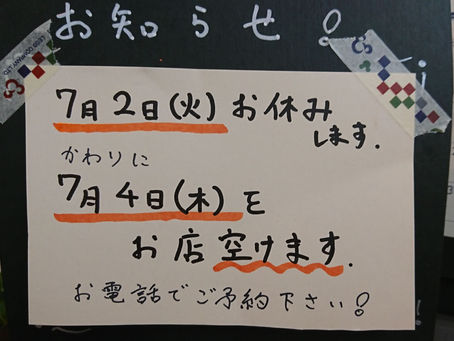 お知らせ!
7月2日(火)お休み
します.
かわりに
7月4日(木)を
お店空けます.
お電話でご予約下さい!